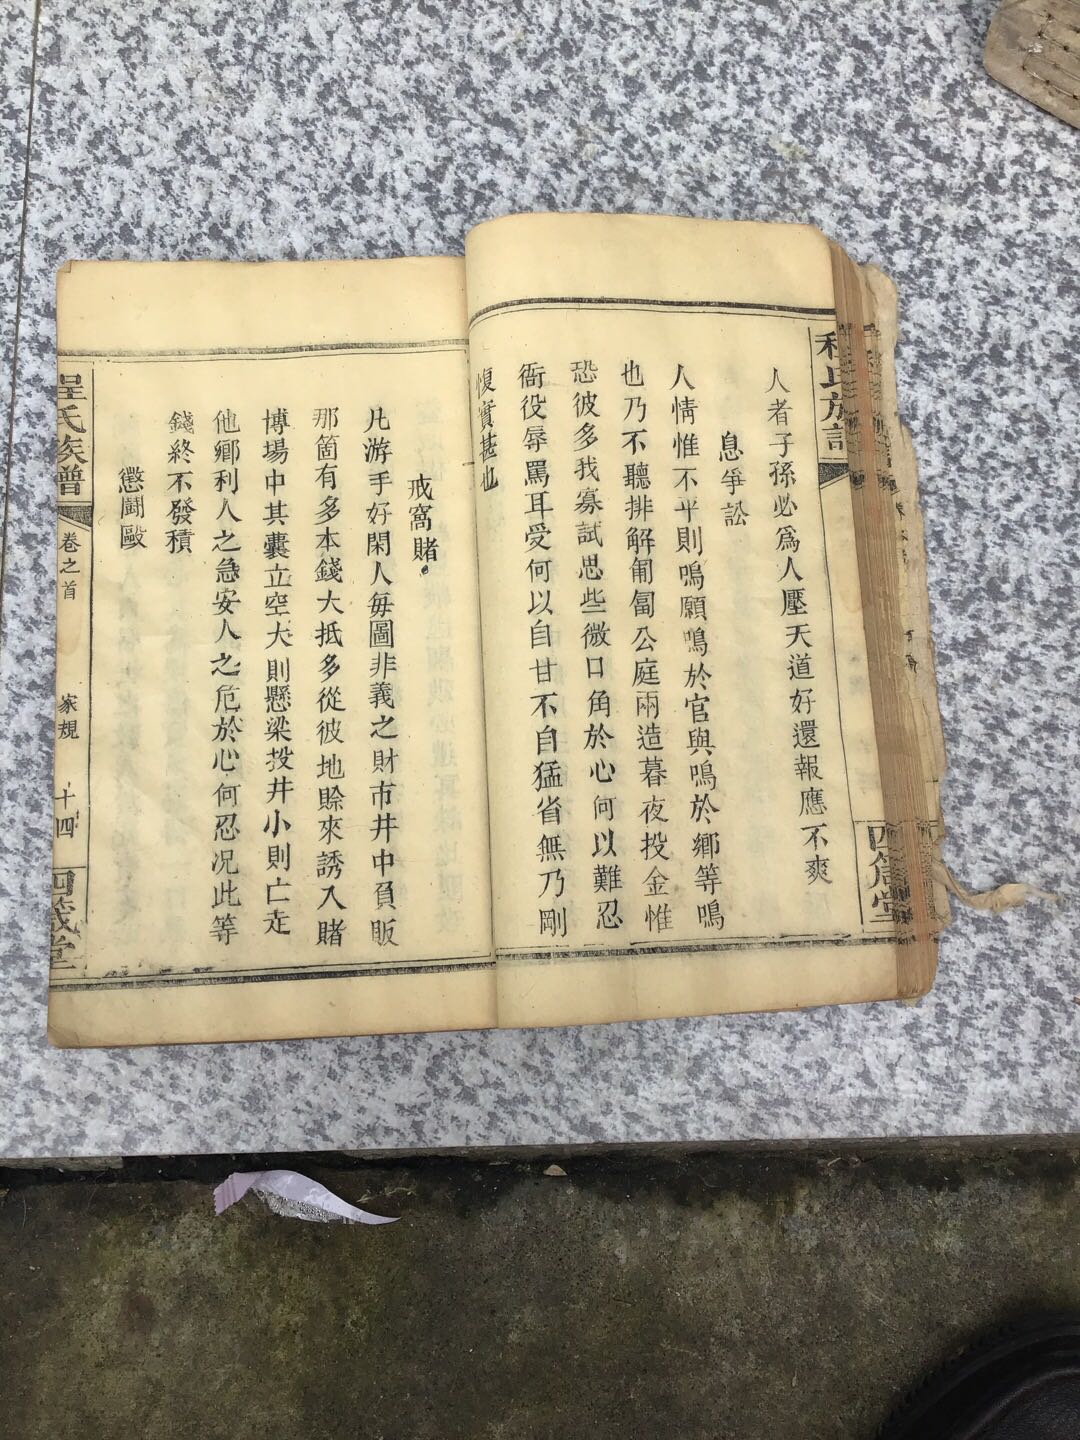 程氏族譜
四箴堂
人者子孫必爲人壓天道好還報應不爽
息爭訟
人情惟不平則鳴願鳴於官與鳴於鄉等鳴
也乃不聽排解匍匐公庭兩造暮夜投金惟
恐彼多我寡試思些微口角於心何以難忍
衙役辱罵耳受何以自甘不自猛省無乃剛
愎實甚也
戒窩賭
凡游手好閑人每圖非義之財市井中負販
那箇有多本錢大抵多從彼地賒來誘入賭
博場中其囊立空大則懸梁投井小則亡走
他鄉利人之急安人之危於心何忍况此等
錢終不發積
懲鬪毆
程氏族譜
卷之首
家規
十四
四箴堂